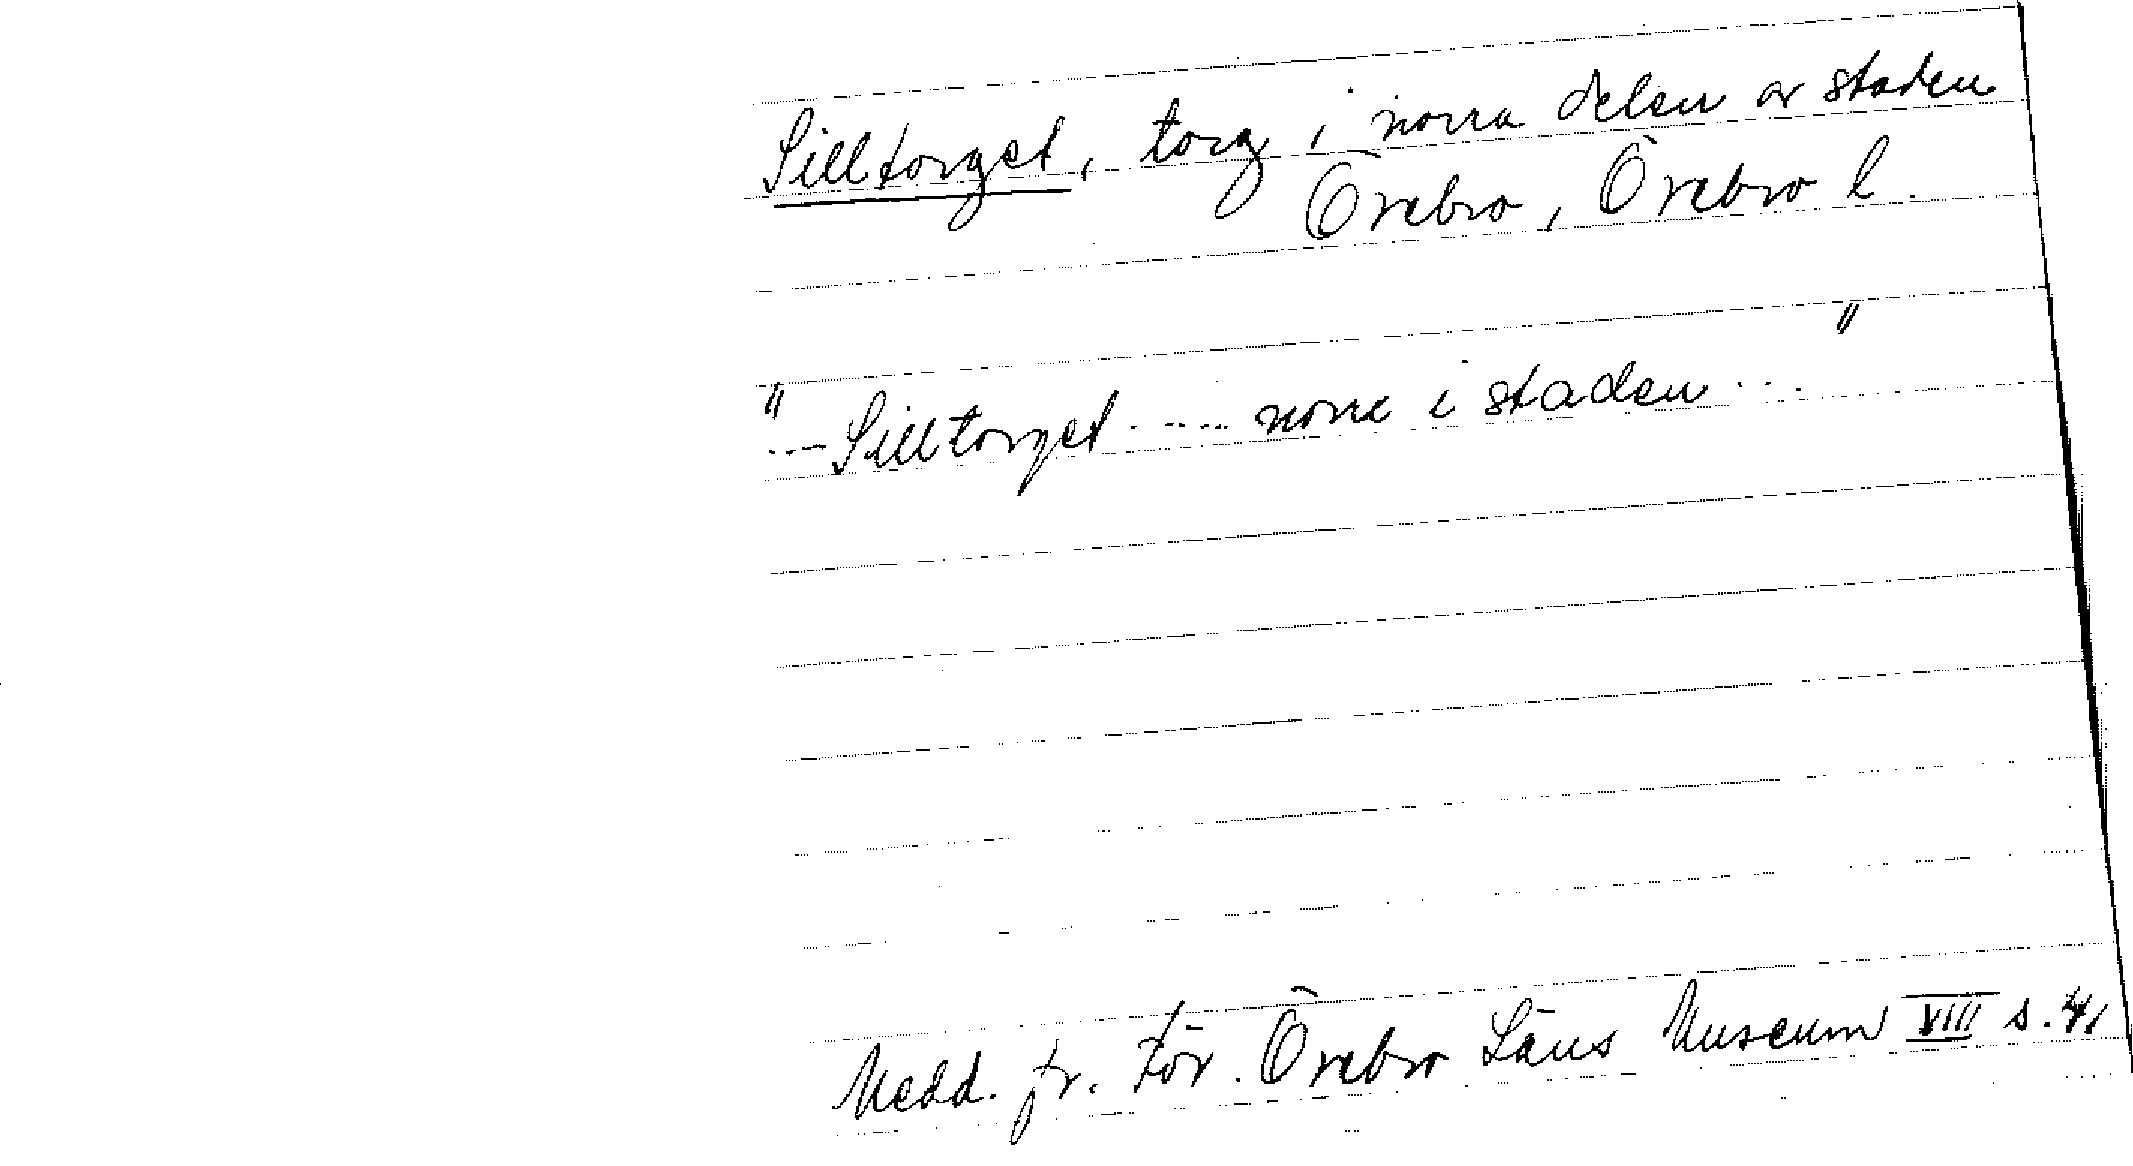 Silltorget, torg i norra delen av staden
Örebro, Örebro l.
"
"
--- Silltorget ..... norre i staden ....
Medd. fr. För. Örebro Läns Museum VIII s.